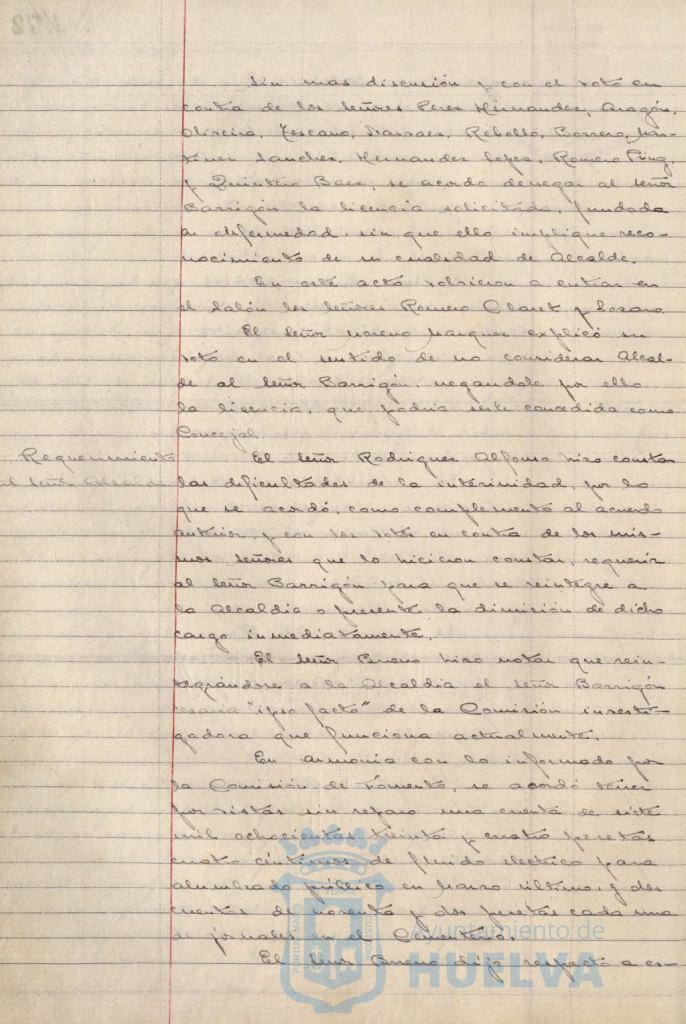 Sin mas discusión y con el voto en
contra de los Señores Perez Hernandez, Aragón,
Oliveira, Tescano, Narvaez, Rebollo, Borrero, Mar-
tinez Sanchez, Hernandez Lopez, Romero
y Quintero Baez, se acordó denegar al señor
Barrigón la licencia solicitada, fundada
en enfermedad, sin que ello implique reco-
nocimiento de su cualidad de Alcalde.
En este acto volvieron a entrar en
el Salón los Señores Romero Claret y Lozano.
El Señor Moreno Marquez explicó su
voto en el sentido de no considerar Alcal-
de al Señor Barrigón, negandole por ello
la licencia, que podria serle concedida como
Concejal.
Requerimiento
al señor Alcalde
El Señor Rodriguez Alfonso hizo constar
las dificultades de la interinidad, por lo
que se acordó, como complemento al acuerdo
anterior, y con los votos en contra de los mis-
mos señores que lo hicieron constar, requerir
al Señor Barrigón para que se reintegre a
la Alcaldia o presente la dimisión de dicho
cargo inmediatamente.
El Señor Bueno hizo notar que rein-
tegrándose a la Alcaldia el señor Barrigón
cesaria "ipso facto" de la Comisión investi-
gadora que funciona actualmente.
En armonia con lo informado por
la Comisión de Fomento, se acordó tener
por vistas sin reparo una cuenta de siete
mil ochocientas treinta y cuatro pesetas
cuatro céntimos de fluido electrico para
alumbrado público en Marzo último, y dos
cuentas de noventa y dos pesetas cada una
de jornales en el Cementerio.
El Señor Bueno dijo respecto a es-
Ayuntamiento de
HUELVA